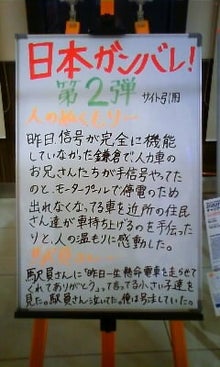 日本ガンバレ!
第2弾 サイト引用
人のぬくもりー
昨日、信号が完全に機能
していなかった鎌倉で人力車の
お兄さんたちが手信号やってた
のと、モータープールで停電のため
出れなくなってる車を近所の住民
さん達が車持ち上げるのを手伝った
りと、人の温もりに感動した。
駅員さんに「昨日一生懸命電車を走らせて
くれてありがとう」って言ってる小さい子達を
見た。駅員さん泣いてた。俺は号泣していた。